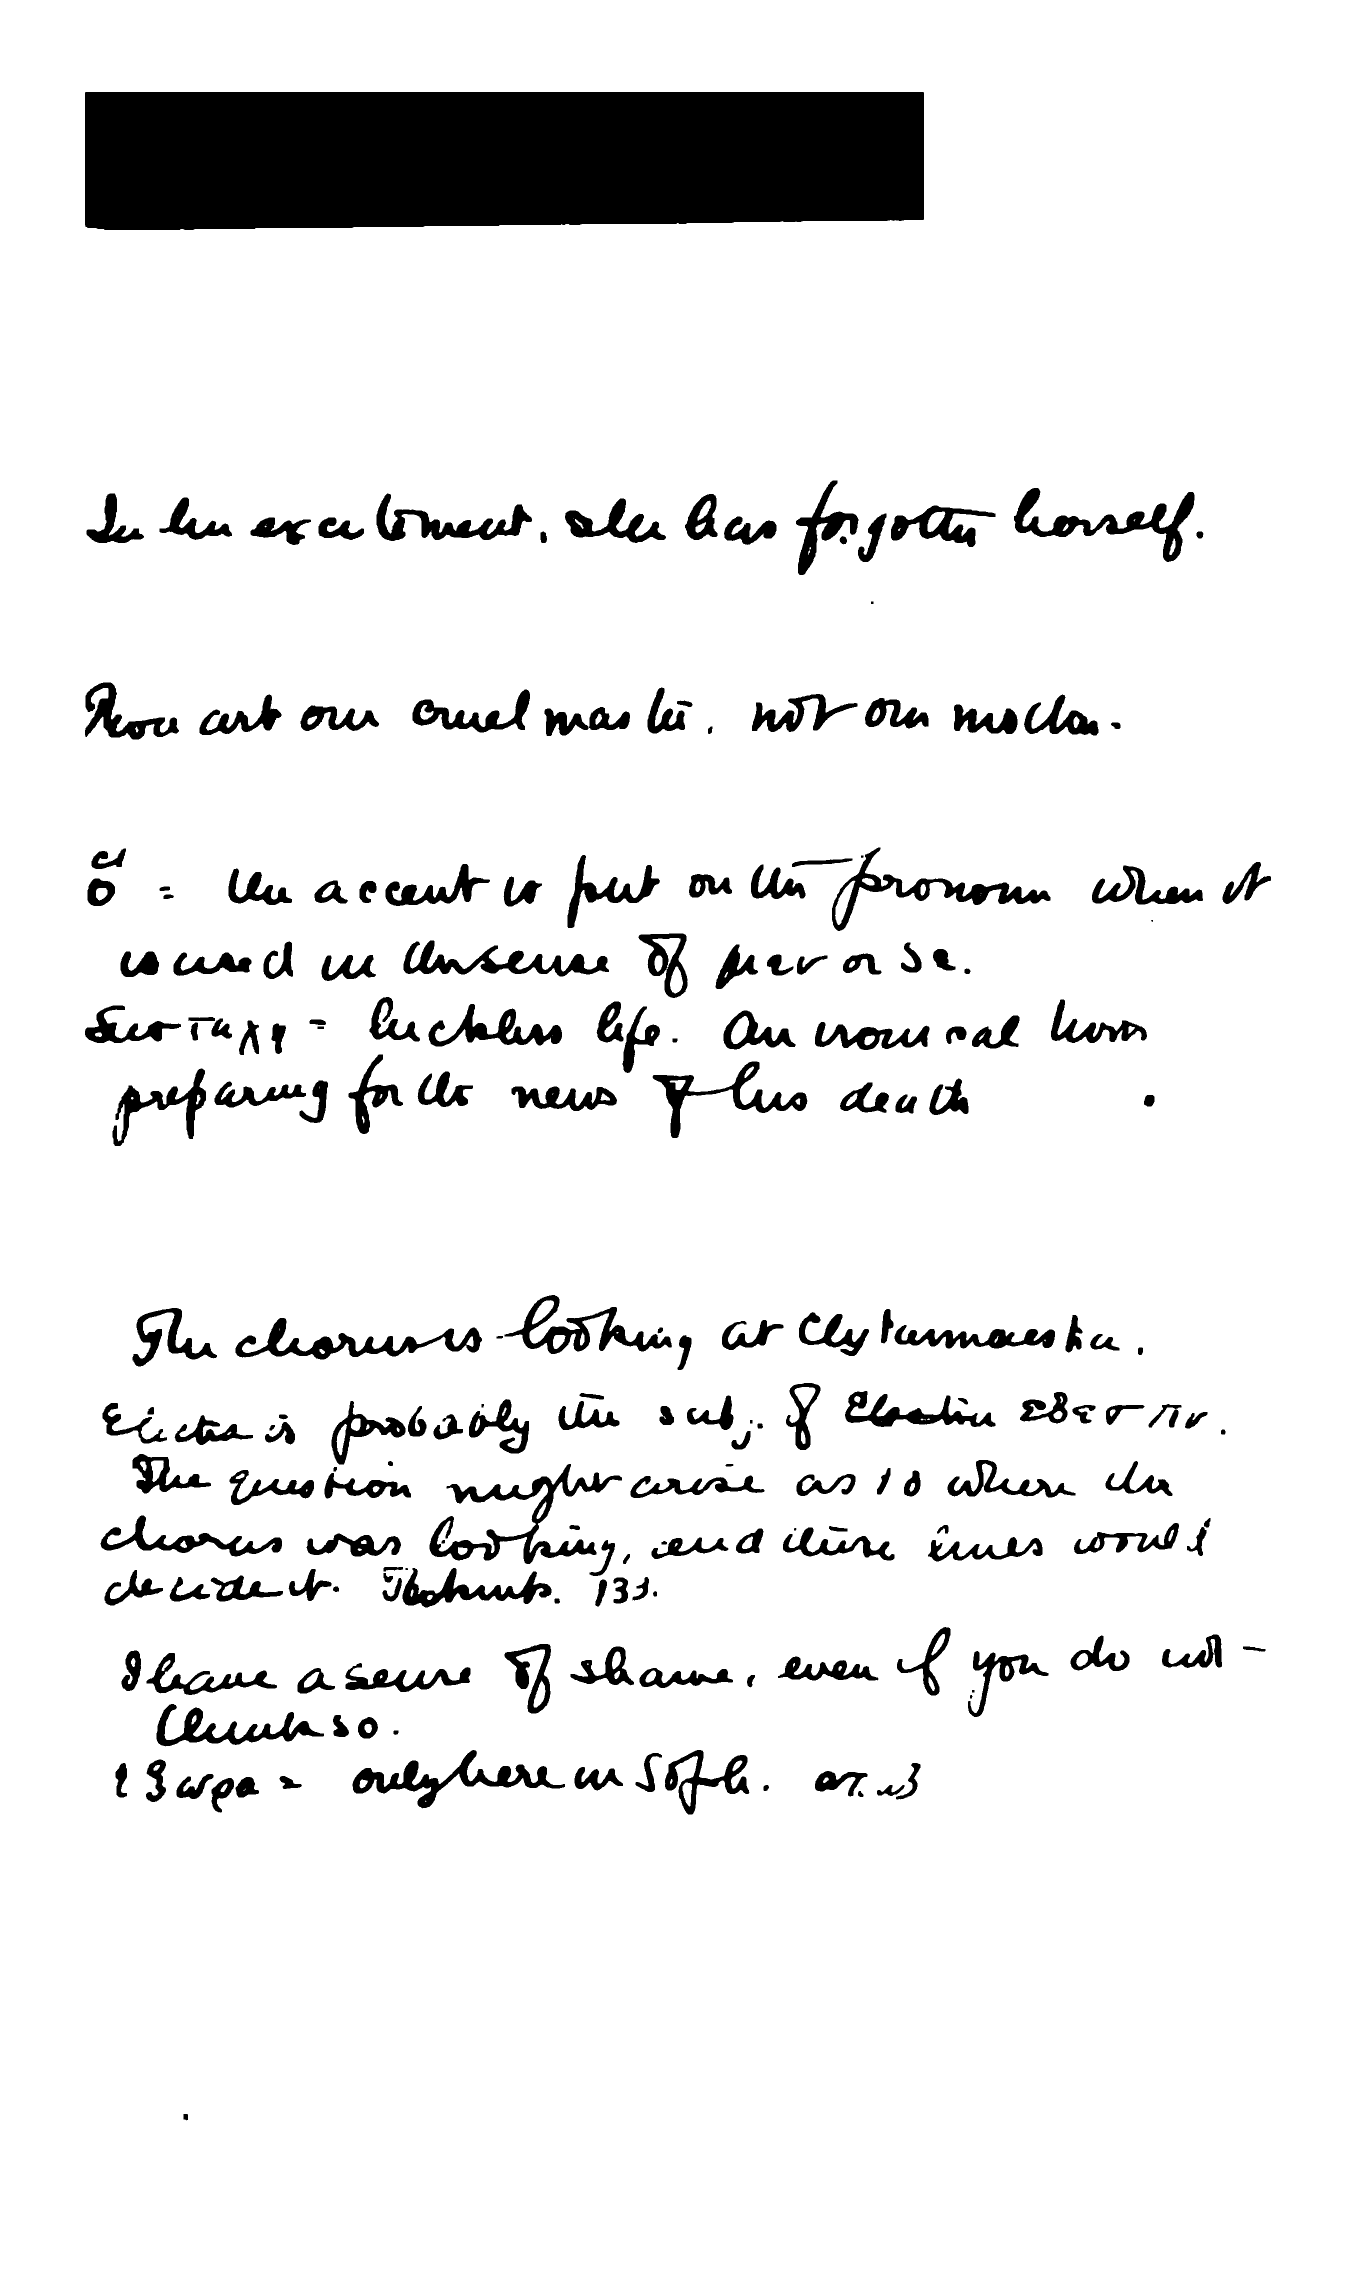 In her excitement, she has forgotten herself.
Thou art our cruel master, not our mother.
= the accent is put on the pronoun when it
is used in the sense of or
= luckless life. An
preparing for the news of his death
The chorus is looking at Clytaemnestra.
Electra is probably the subj. of
The question might arise as to where the
chorus was looking, and these lines would
decide it.
I have a sense of shame, even if you do not
think so.
= only here in Soph.